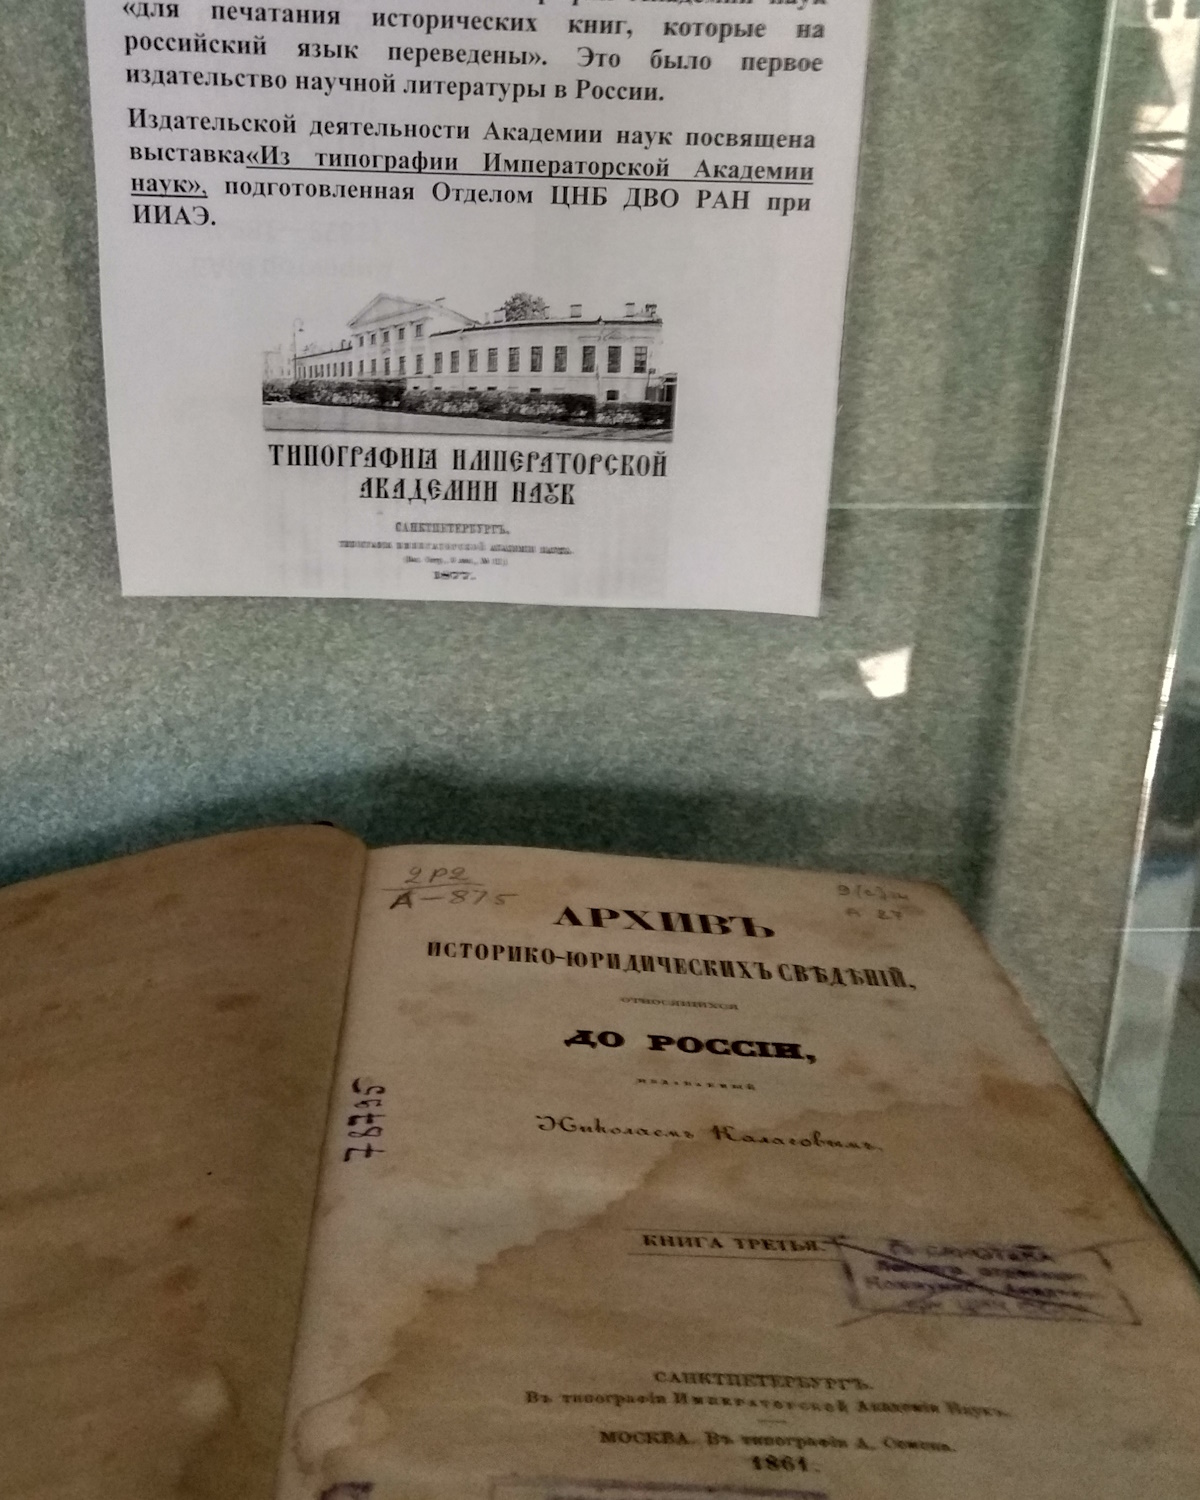 «для печатания исторических книг, которые на
российский язык переведены». Это было первое
издательство научной литературы в России.
Издательской деятельности Академии наук посвящена
выставка«Из типографии Императорской Академии
наук», подготовленная Отделом ЦНБ ДВО РАН при
ИИАЭ.
ТИПОГРАФИЯ ИМПЕРАТОРСКОЙ
АКАДЕМИИ НАУК
САНКТПЕТЕРБУРГЪ.
ТИПОГРАФІЯ ИМПЕРАТОРСКОЙ АКАДЕМІИ НАУКЪ.
1877.
2Р2
А-875
АРХИВЪ
ИСТОРИКО-ЮРИДИЧЕСКИХЪ СВѢДѢНІЙ,
ОТНОСЯЩИХСЯ
ДО РОССІИ,
ИЗДАВАЕМЫЙ
Николаемъ Калачовымъ.
78795
КНИГА ТРЕТЬЯ.
САНКТПЕТЕРБУРГЪ.
Въ типографіи Императорской Академіи Наукъ.
МОСКВА. Въ типографіи А. Семена.
1861.